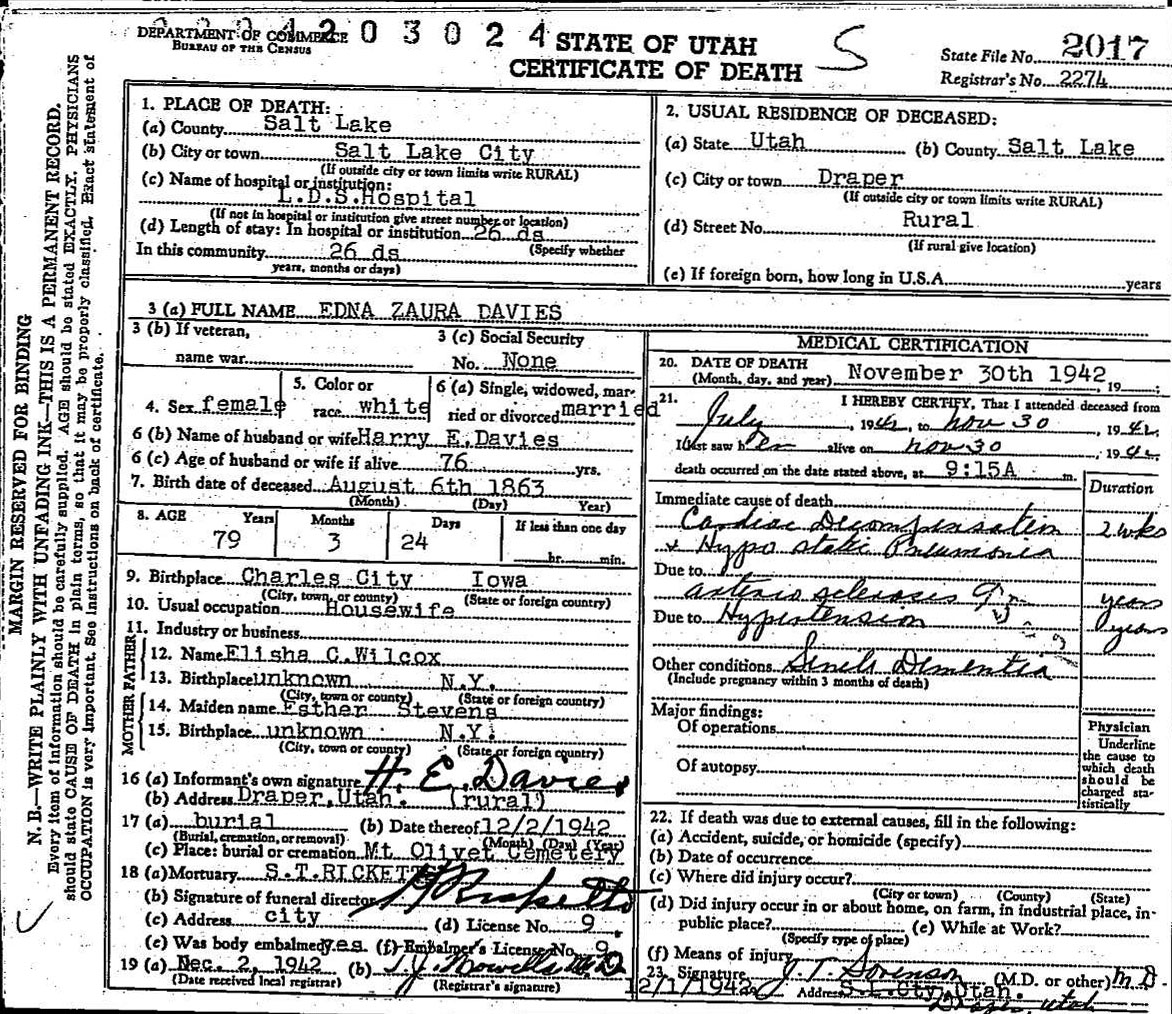 DEPARTMENT OF COMMERCE
BUREAU OF THE CENSUS
2 0 3 0 2 4
STATE OF UTAH
CERTIFICATE OF DEATH
S
State File No. 2017
Registrar's No. 2274
MARGIN RESERVED FOR BINDING
N. B.—WRITE PLAINLY WITH UNFADING INK—THIS IS A PERMANENT RECORD.
Every item of information should be carefully supplied. AGE should be stated EXACTLY. PHYSICIANS
should state CAUSE OF DEATH in plain terms, so that it may be properly classified. Exact statement of
OCCUPATION is very important. See instructions on back of certificate.
1. PLACE OF DEATH:
(a) County Salt Lake
(b) City or town Salt Lake City
(If outside city or town limits write RURAL)
(c) Name of hospital or institution:
L.D.S.Hospital
(If not in hospital or institution give street number or location)
(d) Length of stay: In hospital or institution 26 ds
(Specify whether
In this community 26 ds
years, months or days)
2. USUAL RESIDENCE OF DECEASED:
(a) State Utah (b) County Salt Lake
(c) City or town Draper
(If outside city or town limits write RURAL)
(d) Street No. Rural
(If rural give location)
(e) If foreign born, how long in U.S.A. years
3 (a) FULL NAME EDNA ZAURA DAVIES
3 (b) If veteran,
name war
3 (c) Social Security
No. None
4. Sex female
5. Color or
race white
6 (a) Single, widowed, mar-
ried or divorced married
6 (b) Name of husband or wife Harry E.Davies
6 (c) Age of husband or wife if alive 76 yrs.
7. Birth date of deceased August 6th 1863
(Month) (Day) Year)
8. AGE Years Months Days If less than one day
79 3 24 hr. min.
9. Birthplace Charles City Iowa
(City, town, or county) (State or foreign country)
10. Usual occupation Housewife
11. Industry or business
FATHER
12. Name Elisha C.Wilcox
13. Birthplace unknown N.Y.
(City, town or county) (State or foreign country)
MOTHER
14. Maiden name Esther Stevens
15. Birthplace unknown N.Y.
(City, town or county) (State or foreign country)
16 (a) Informant's own signature H. E. Davies
(b) Address Draper,Utah. (rural)
17 (a) burial (b) Date thereof 12/2/1942
(Burial, cremation, or removal) (Month) (Day) (Year)
(c) Place: burial or cremation Mt Olivet Cemetery
18 (a) Mortuary S.T.RICKETT
(b) Signature of funeral director Ricketts
(c) Address city (d) License No. 9.
(e) Was body embalmed yes (f) Embalmer's License No. 9
19 (a) Dec. 2, 1942 (b) T. J. Howells M.D.
(Date received local registrar) (Registrar's signature)
MEDICAL CERTIFICATION
20. DATE OF DEATH
(Month, day, and year) November 30th 1942, 19
21. I HEREBY CERTIFY, That I attended deceased from
July, 1942, to Nov 30, 1942.
I last saw her alive on Nov 30, 1942.
death occurred on the date stated above, at 9:15A m.
Duration
Immediate cause of death
Cardiac Decompensation 2 wks
& Hypo static Pneumonia
Due to
arterio scleroses years
Due to Hypertension years
Other conditions Senile Dementia
(Include pregnancy within 3 months of death)
Major findings:
Of operations
Of autopsy
Physician
Underline
the cause to
which death
should be
charged sta-
tistically
22. If death was due to external causes, fill in the following:
(a) Accident, suicide, or homicide (specify)
(b) Date of occurrence
(c) Where did injury occur?
(City or town) (County) (State)
(d) Did injury occur in or about home, on farm, in industrial place, in-
public place? (e) While at Work?
(Specify type of place)
(f) Means of injury
23. Signature J. T. Sorenson (M.D. or other) M D.
12/1/1942 Address S.L.Cty,Utah.
Draper, Utah